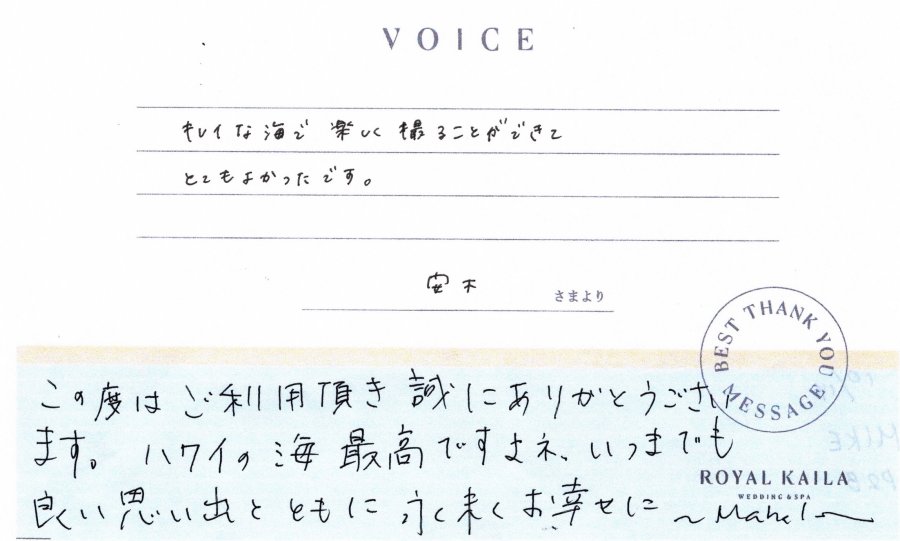 VOICE
キレイな海で 楽しく 撮ることができて
とてもよかったです。
安木 さまより
BEST THANK YOU MESSAGE
この度は ご利用頂き 誠にありがとうござい
ます。 ハワイの海 最高ですよネ、いつまでも
MIKE
ROYAL KAILA
WEDDING & SPA
良い思い出と ともに 永く末く お幸せに